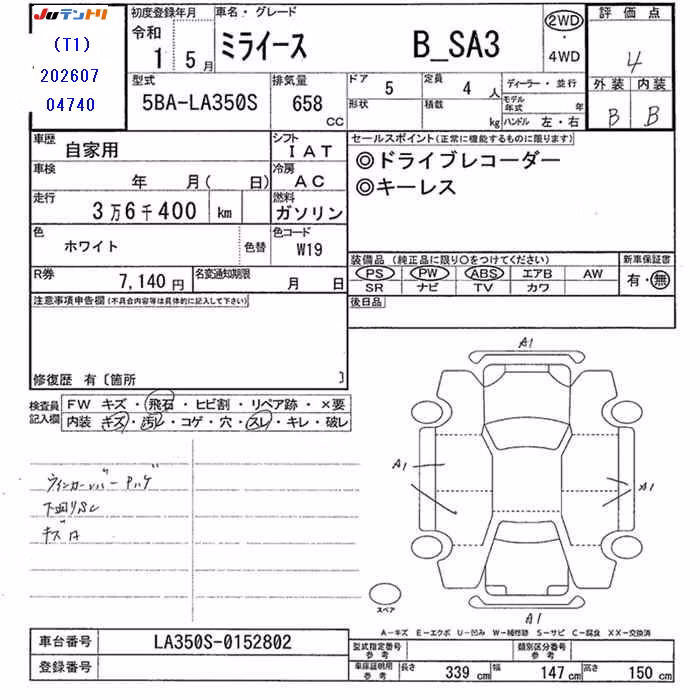 JUテントリ
(T1)
202607
04740
初度登録年月
令和
1 5月
車名・グレード
ミライース B_SA3
2WD
・
4WD
評価点
4
外装 内装
B B
型式
5BA-LA350S
排気量
658 CC
ドア 5
定員 4 人
形状
積載 kg
ディーラー・並行
モデル年式 年
ハンドル 左・右
車歴
自家用
シフト
IAT
車検
年 月( 日)
冷房
AC
走行
3万6千400 km
燃料
ガソリン
色
ホワイト
色替
色コード
W19
R券
7,140円
名変通知期限
月 日
セールスポイント(正常に機能するものに限ります)
◎ドライブレコーダー
◎キーレス
装備品(純正品に限り○をつけてください)
PS PW ABS エアB AW
SR ナビ TV カワ
新車保証書
有・無
後日品
注意事項申告欄(不具合内容等は具体的に記入して下さい)
修復歴 有〔箇所 〕
検査員記入欄
FW キズ・飛石・ヒビ割・リペア跡・×要
内装 キズ・汚レ・コゲ・穴・スレ・キレ・破レ
ウィンカーレバー
下廻りSC
キズA
A1
A1
A1
A1
スペア
A-キズ E-エクボ U-凹み W-補修跡 S-サビ C-腐食 XX-交換済
車台番号
LA350S-0152802
登録番号
型式指定番号参考
類別区分番号参考
車庫証明用参考
長さ 339 cm 幅 147 cm 高さ 150 cm